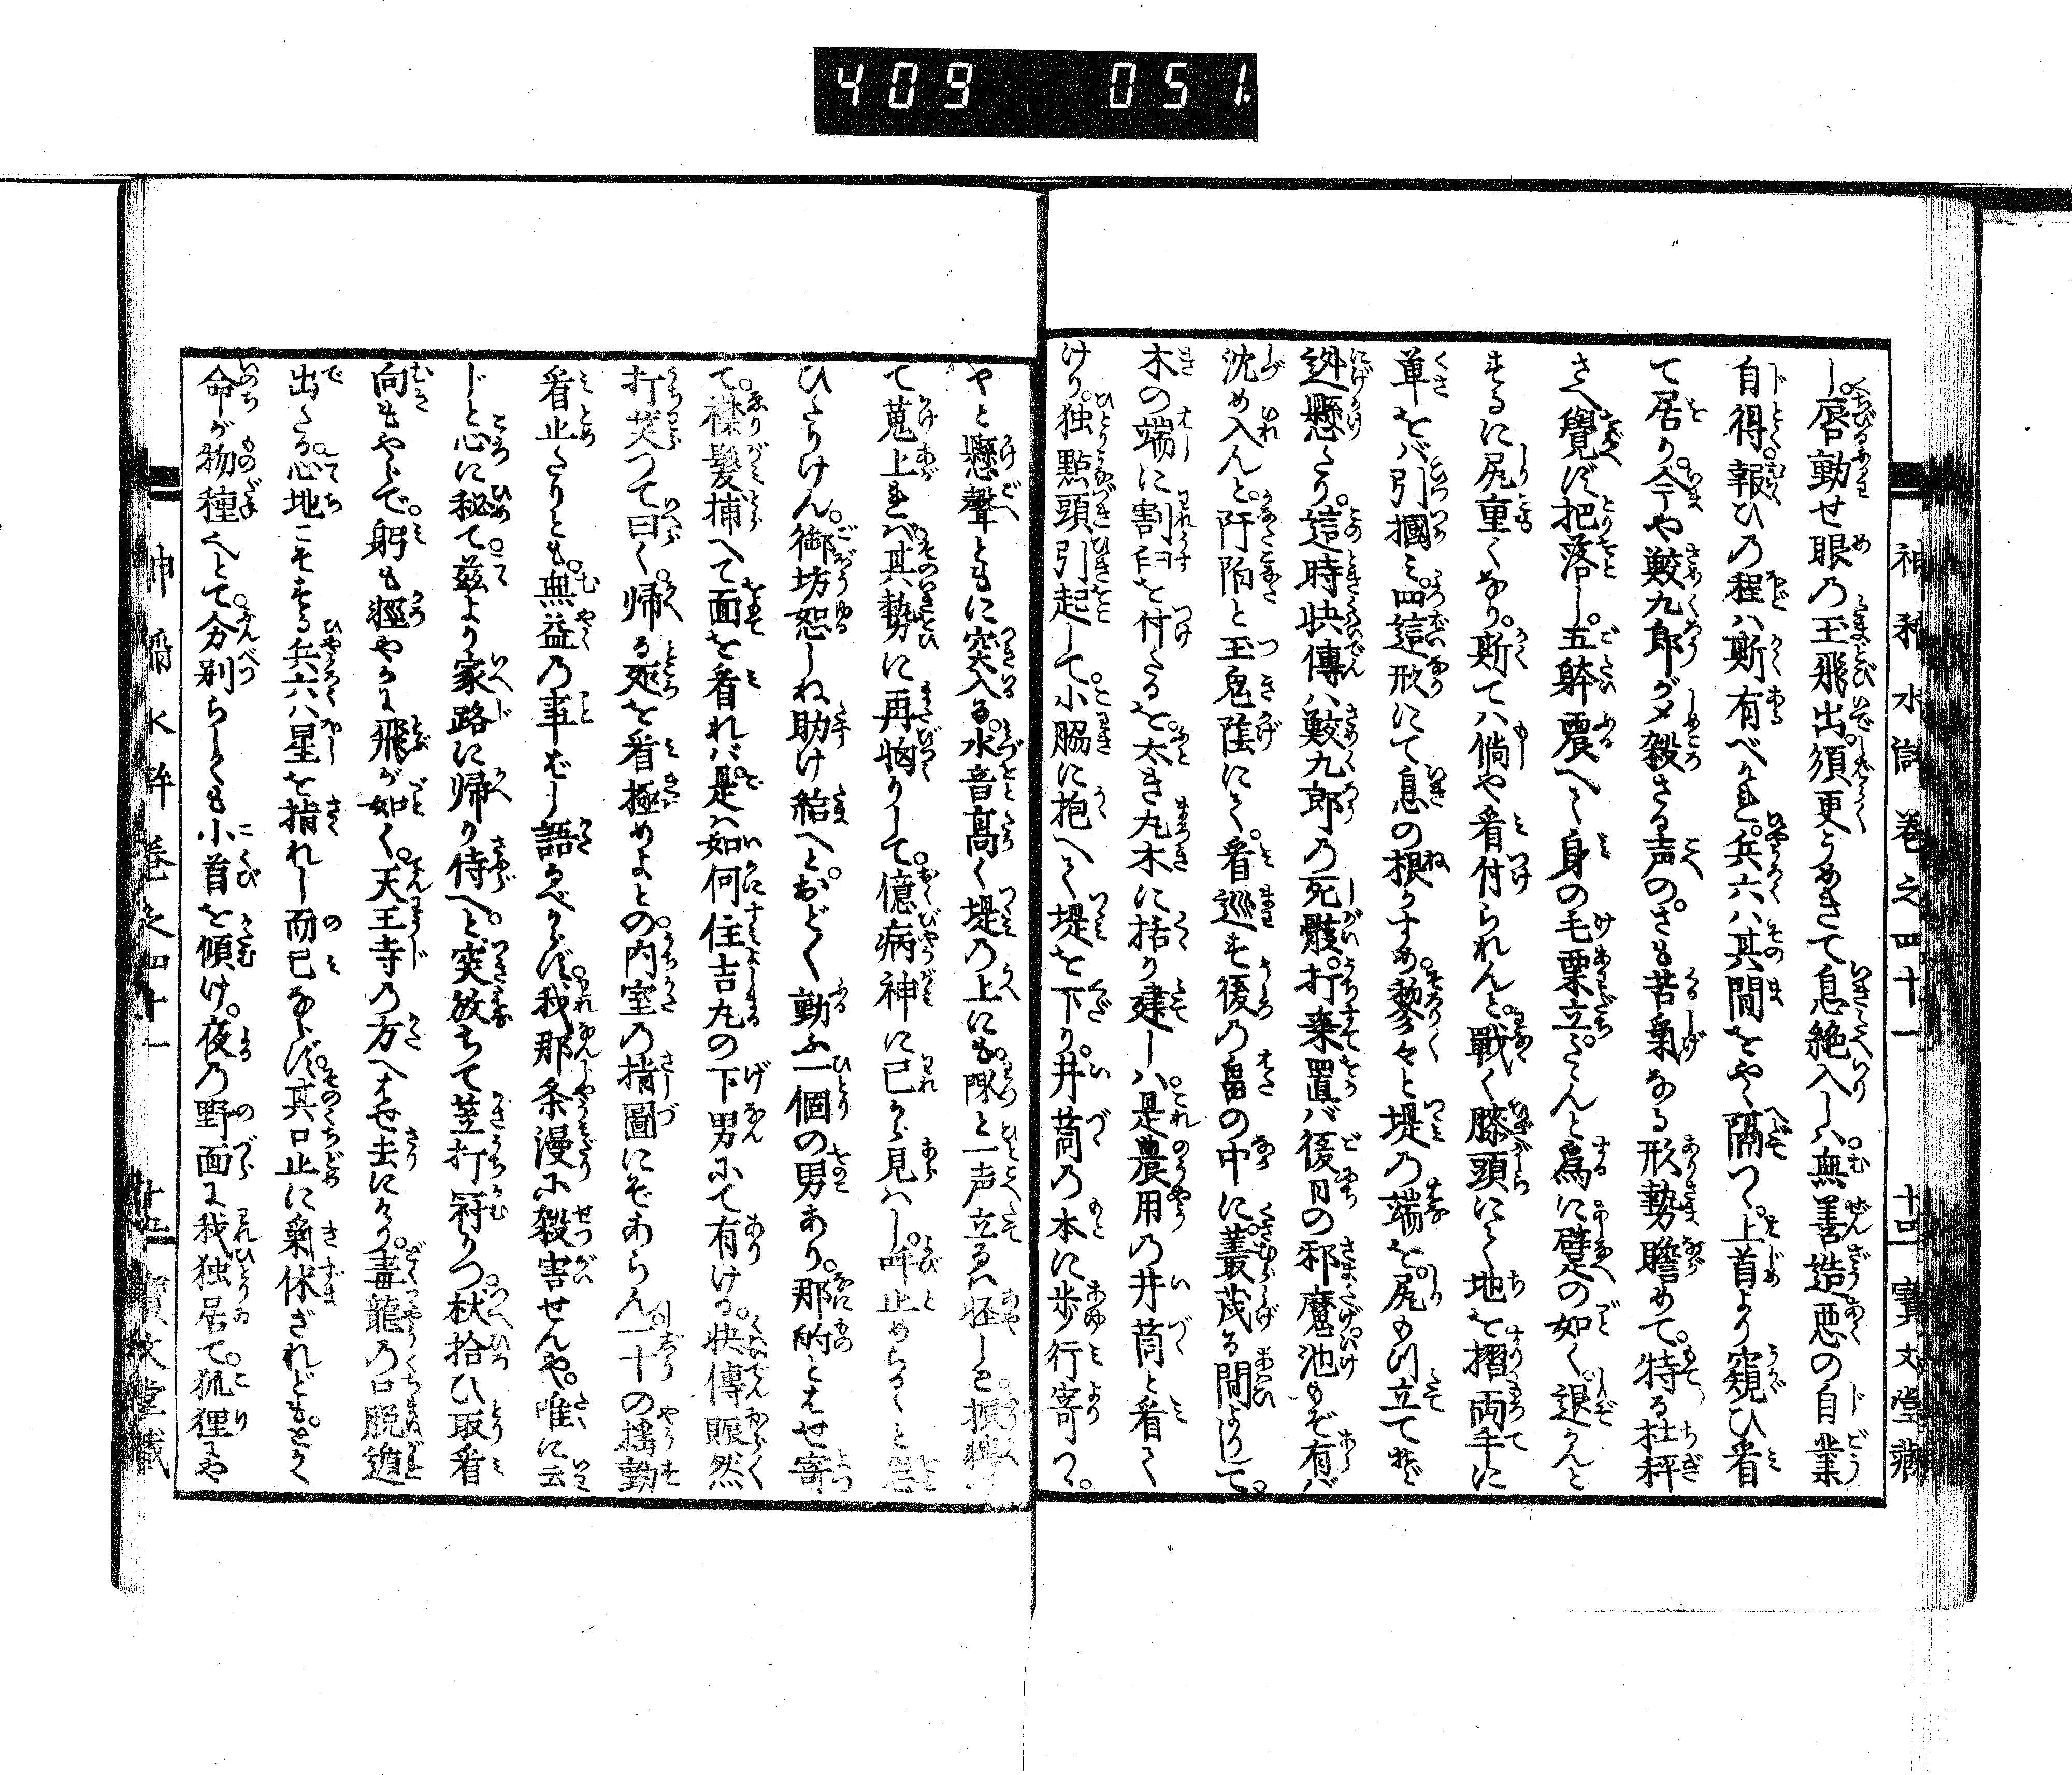 409 051.
神稲水滸巻之四十一 十四 寳文堂藏
し。唇動せ眼の玉飛出。須更うめきて息絶入しハ無善造悪の自業
自得。報ひの程ハ斯有べかれ。兵六ハ其間をやく隔つ。上首より窺ひ看
て居り。今や鮫九郎がメ殺さる声の。さも苦氣なる形勢瞻めて。特る杜秤
さへ覺ず把落し。五躰震へく身の毛栗立。ざんと為に躄の如く退かんと
するに尻重くなり。斯てハ倘や看付られんと。戰く膝頭にく地を摺両手に
草をバ引摑ミ。四這形にて息の根かすめ。摎々と堤の端を。尻も川立てず
迯懸たり。這時快傳ハ鮫九郎の死骸。打棄置バ後日の邪魔。池もぞ有バ
沈め入んと。阡陌と玉兎陰にく。看巡す後の畠の中に。叢茂る間よりして。
木の端に割臼を付たるを。太き丸木に括り建しハ。是農用の井筒と看く
けり。独點頭引起して。小脇に抱へく堤を下り。井筒の本に歩行寄つ。
やと懸聲ともに突入る。水音高く堤の上にも。啄と一声立るハ怪しと。振
て蒐上れバ。其勢に再惱りして。億病神に已から見ハし。呼止めらるゝと思
ひたりけん。御坊恕しね助け給へと。おどく動ふ一個の男あり。那的とはせ寄
て。襟髪捕へて面を看れバ。是ハ如何住吉丸の下男にて有ける。快傳賑然
打笑つて曰く。帰る処を看極めよとの。内室の指圖にぞあらん。一十の揺動
看止たりとも。無益の事ばし語るべからず。我那条漫に殺害せんや。唯に云
じと心に秘て。茲より家路に帰り侍へと。突放ちて笠打冠りつ。杖拾ひ取看
向もやらで。躬も輕やかに飛が如く。天王寺の方へはせ去にけり。毒龍の口脱遁
出たる。心地こそする兵六ハ星を指れし而已ならず。其口止に氣休ざれども。とく
命が物種へとて。分別らしくも小首を傾け。夜の野面に我独居て。狐狸にや
神稲水滸巻之四十一 十五 寳文堂藏